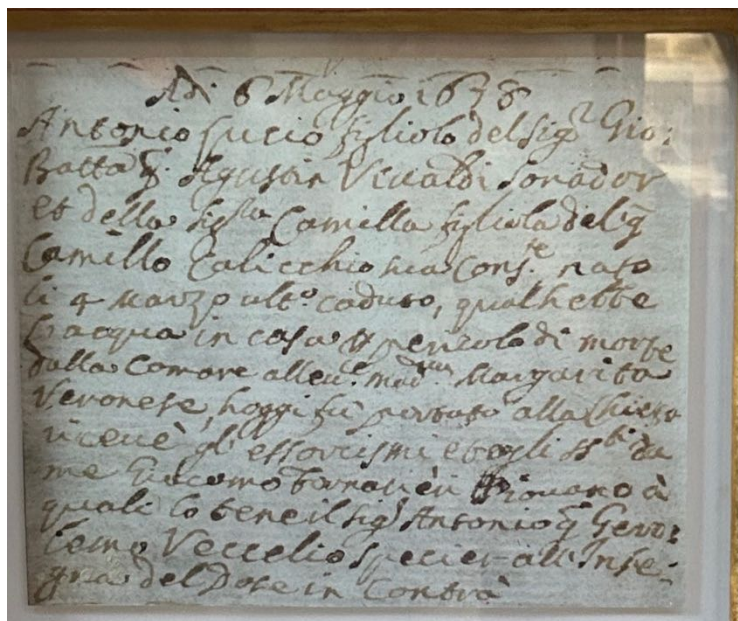 Adi 6 Maggio 1678
Antonio Lucio figliolo del Sigr Gio:
Batta q. Agustin Viualdi Sonador
et della Sigra Camilla figliola del q
Camillo Calicchio sua Conse nato
li 4 Marzo ulto caduto, qual hebbe
l'acqua in casa p pericolo di morte
dalla Comare alleue. mad.na Margarita
Veronese, hoggi fù portato alla Chiesa
riceuè gl' essorcismi et ogli SSti da
me Giacomo Fornacieri Piouano à
quali lo tene il Sigr Antonio q Gero:
lemo Veccelio specier all' Inse-
gna del Dose in Contrà